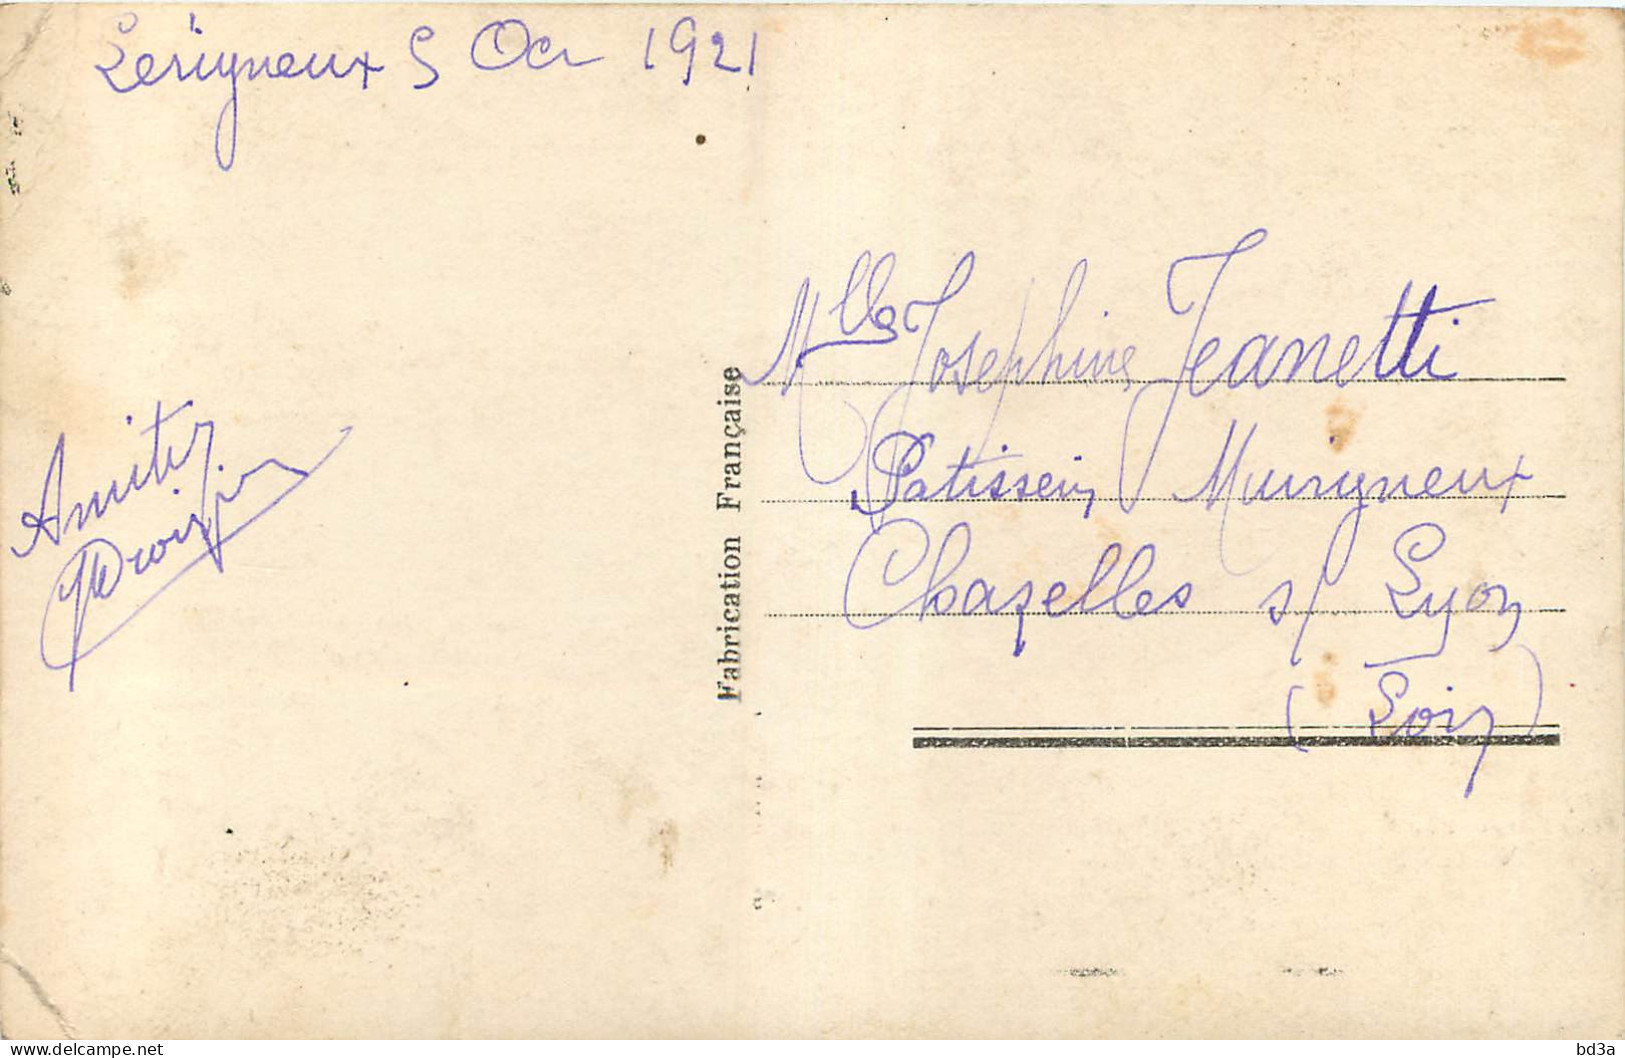 Lerigneux 5 Oct 1921
Amitiés
Mlle Josephine Jeanetti
Patisserie Murigneux
Chazelles s/ Lyon
(Loire)
Fabrication Française
delcampe.net
bd3a